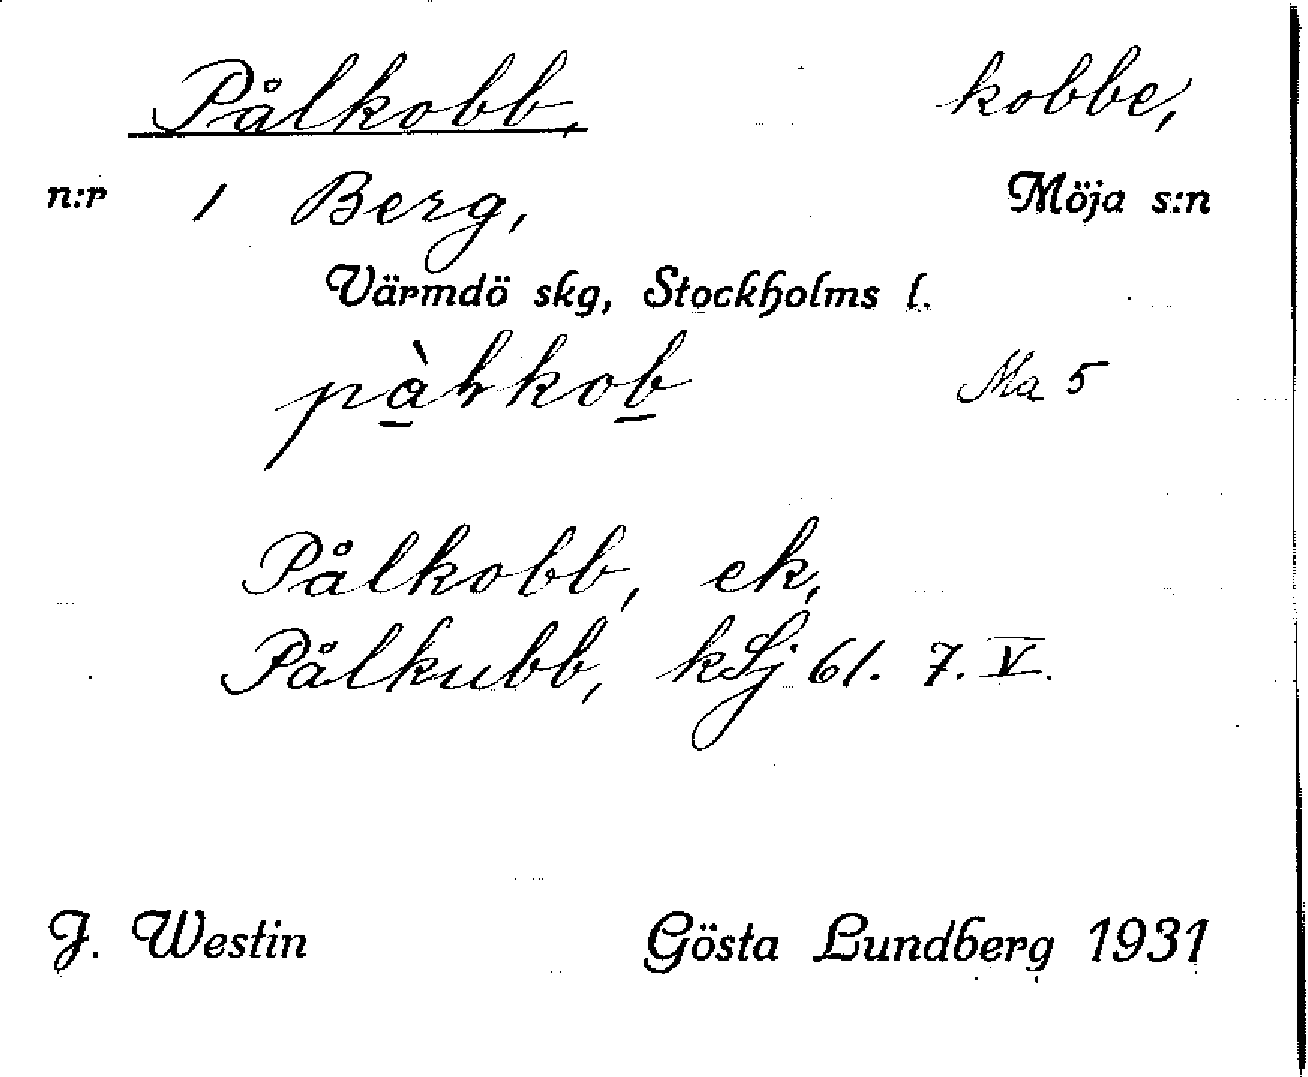 Pålkobb, kobbe,
n:r 1 Berg, Möja s:n
Värmdö skg, Stockholms l.
Ma 5
Pålkobb, ek,
Pålkubb, kSj 61. 7. V.
J. Westin Gösta Lundberg 1931